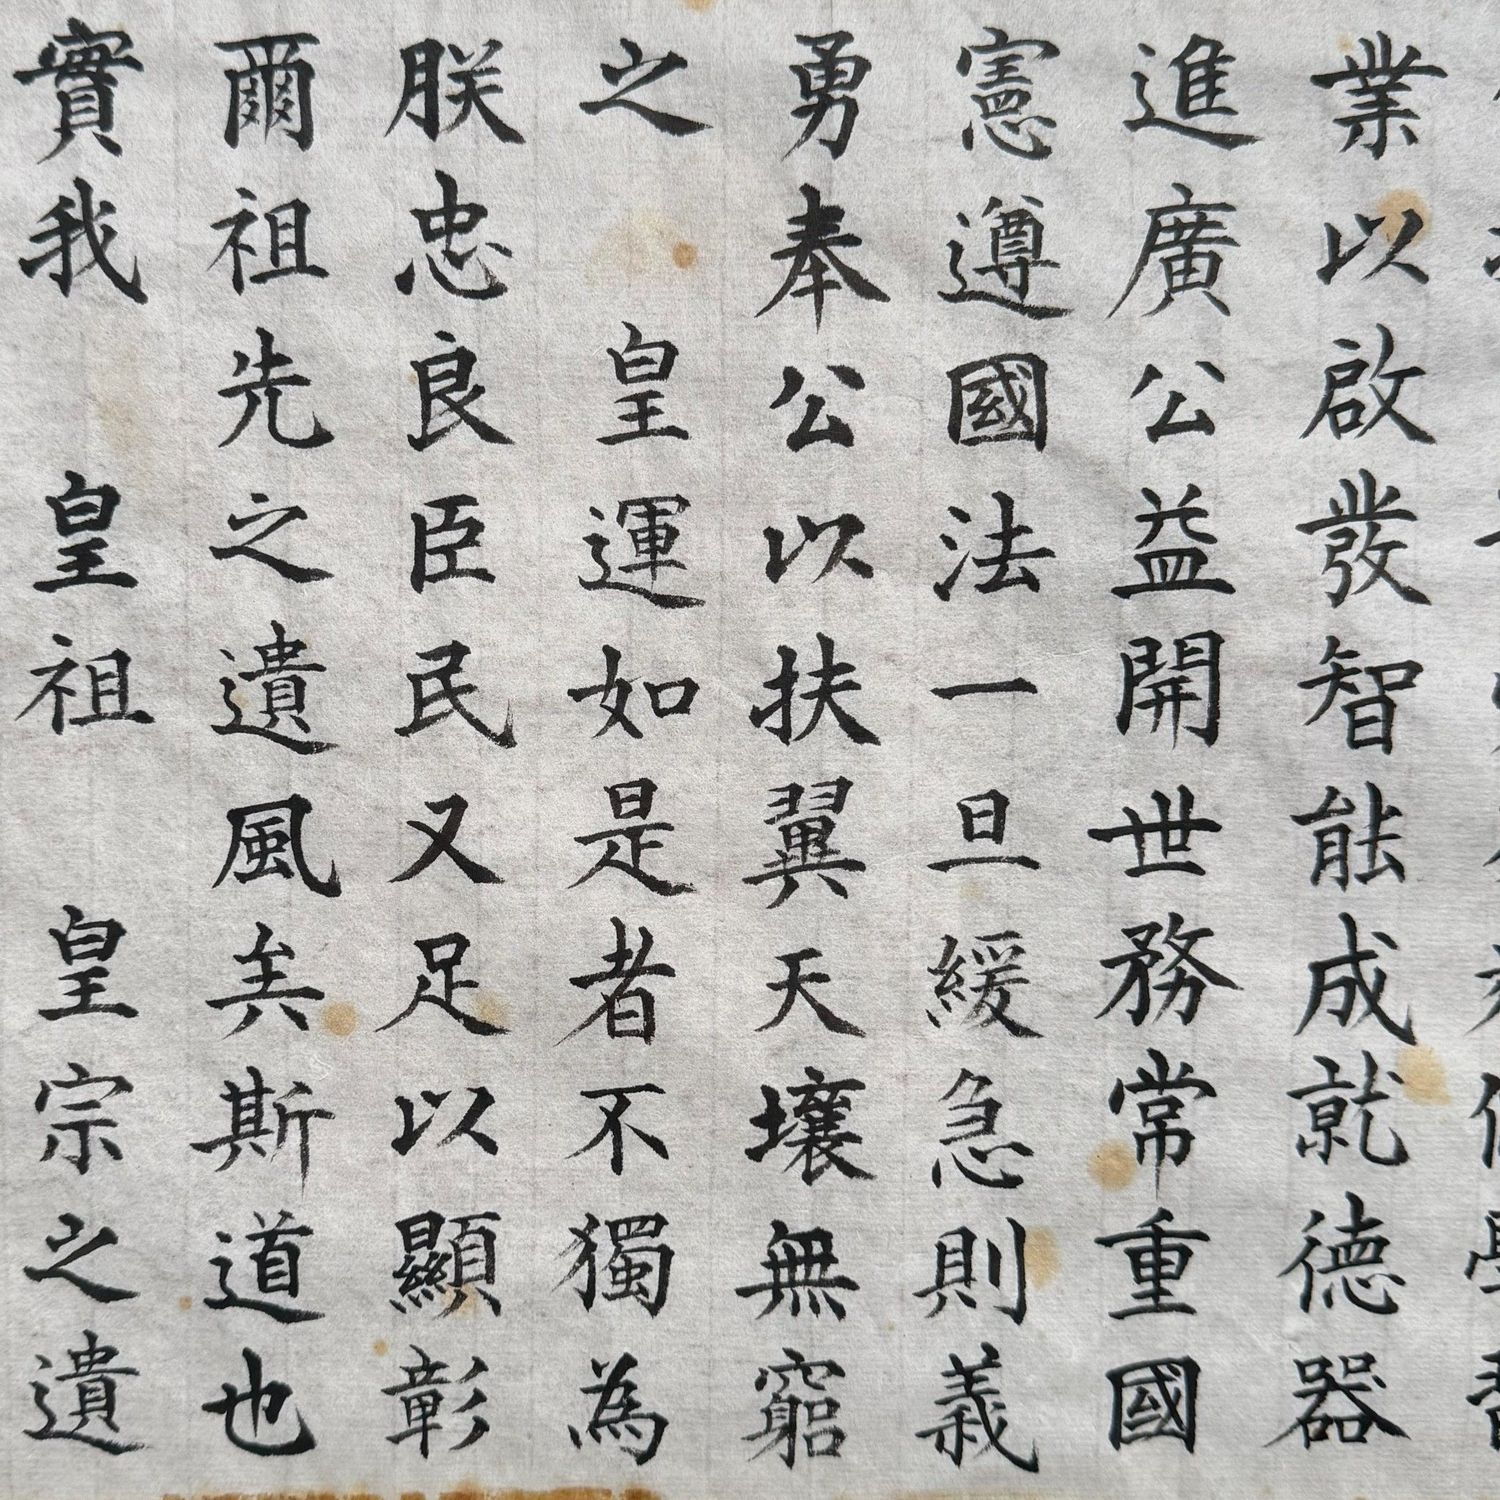 業以啟發智能成就德器
進廣公益開世務常重國
憲遵國法一旦緩急則義
勇奉公以扶翼天壤無窮
之　皇運如是者不獨為
朕忠良臣民又足以顯彰
爾祖先之遺風矣斯道也
實我　皇祖　皇宗之遺